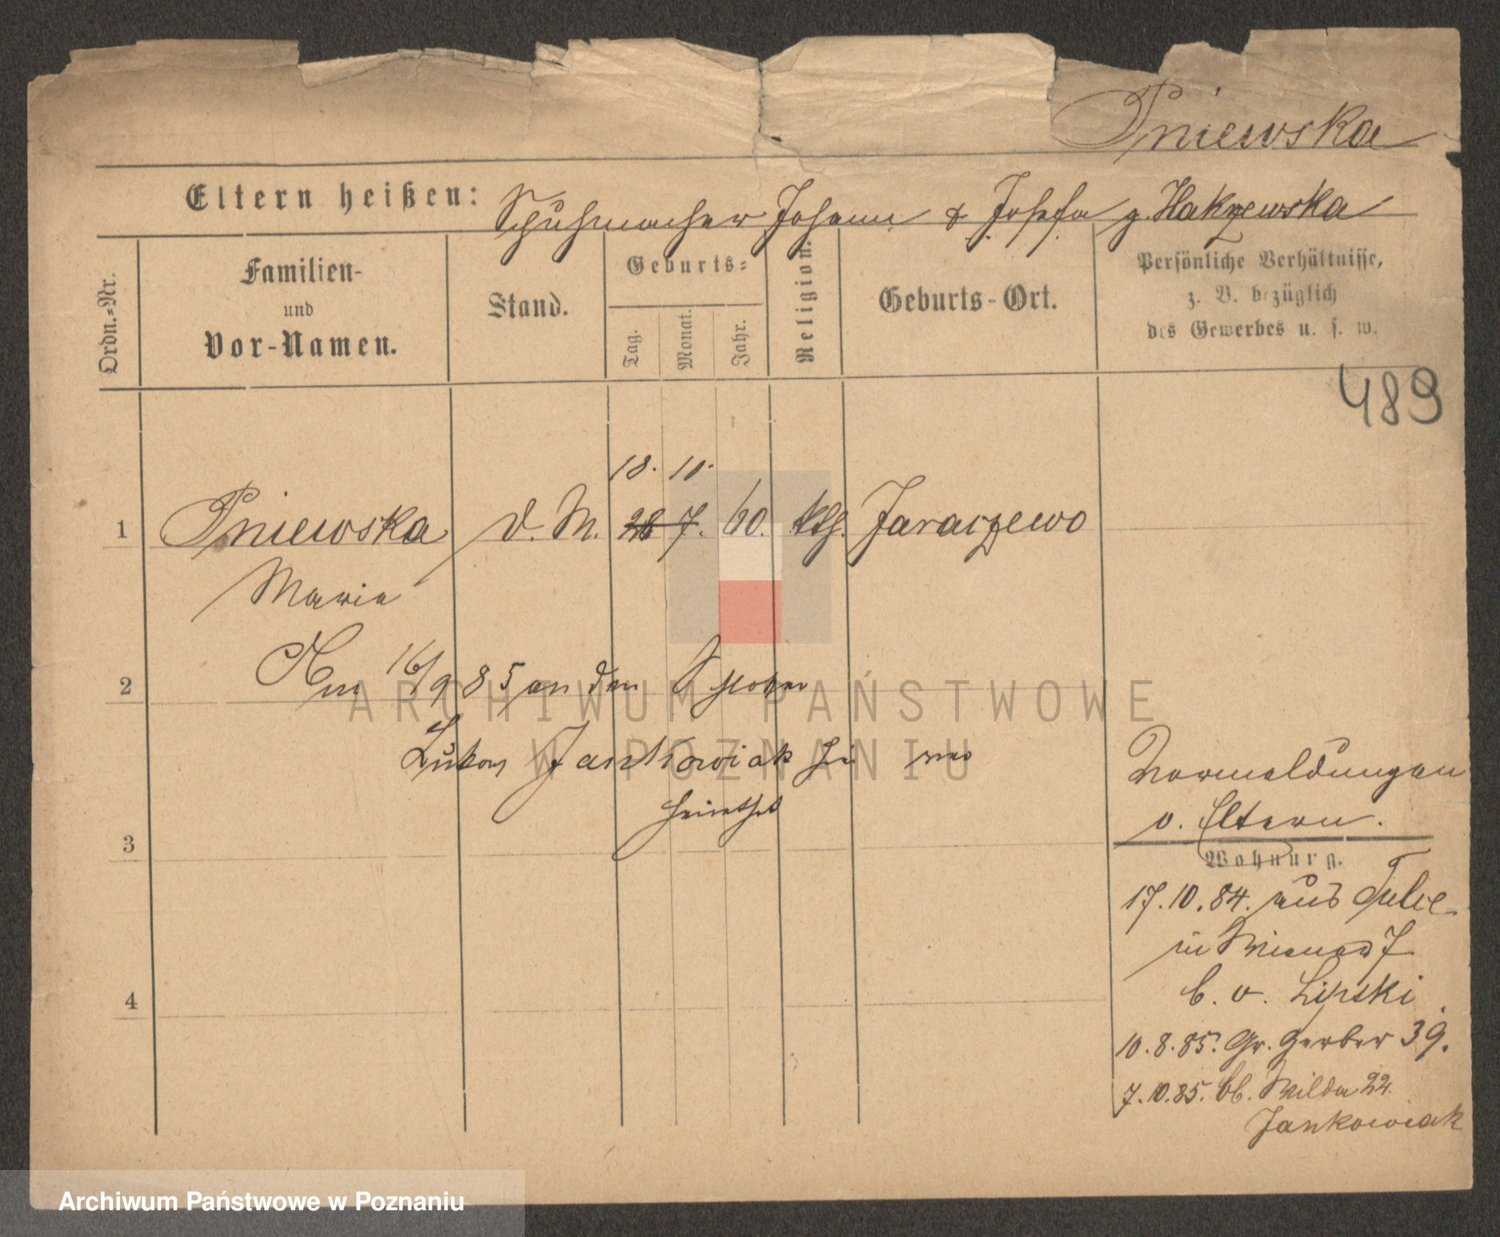 Pniewska
Eltern heißen: Schuhmacher Johann & Josefa g. Hakrzewska
Ordn.-Nr.
Familien-
und
Vor-Namen.
Stand.
Geburts-
Tag.
Monat.
Jahr.
Religion.
Geburts-Ort.
Persönliche Verhältnisse,
z. B. bezüglich
des Gewerbes u. s. w.
489
18. 10.
1 Pniewska d. M. 28 7. 60. ktl. Jaraczewo
Maria
2 Am 16/9 85 an den
Lukas Jankowiak hier
3
4
v. Eltern.
Wohnung.
17.10.84. aus
in
b. v. Lipski
10.8.85. Gr. Gerber 39.
7.10.85. Wilda 22.
Jankowiak
ARCHIWUM PAŃSTWOWE
W POZNANIU
Archiwum Państwowe w Poznaniu